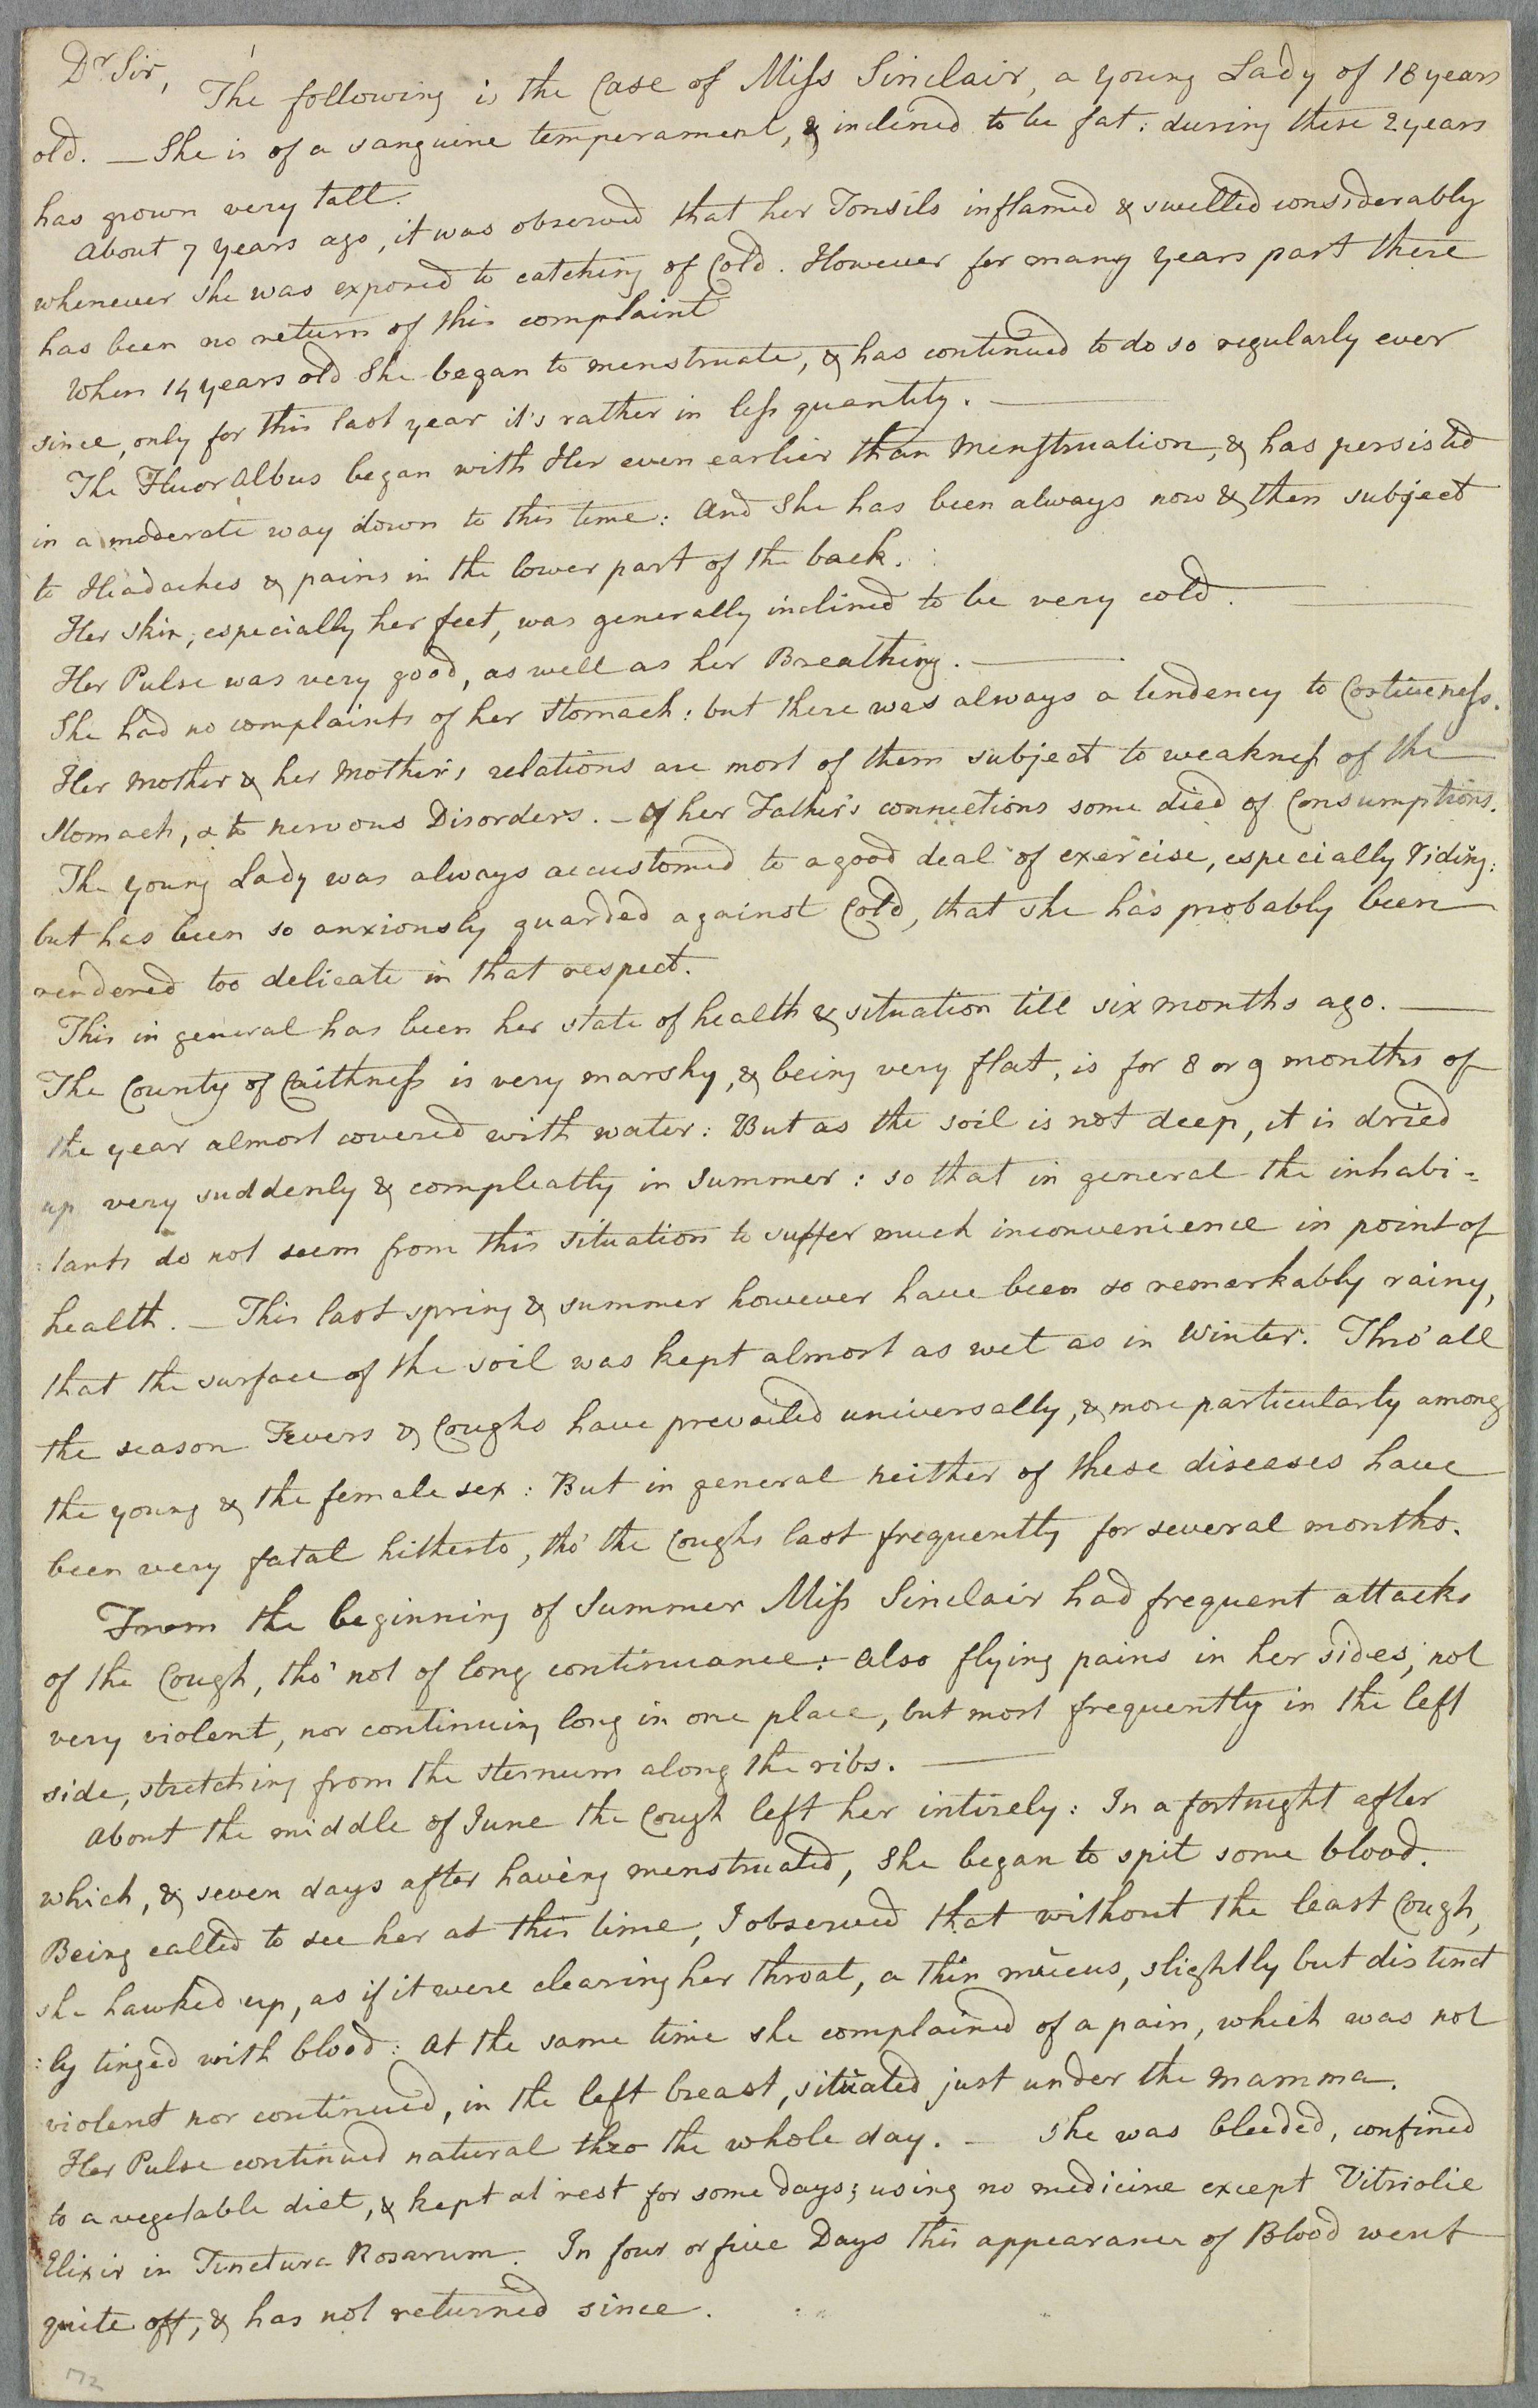 Dr Sir,
The following is the Case of Miss Sinclair, a young Lady of 18 years
old. — She is of a sanguine temperament, & inclined to be fat: during these 2 years
has grown very tall.
About 7 years ago, it was observed that her Tonsils inflamed & swelled considerably
whenever she was exposed to catching of Cold. However for many years past there
has been no return of this complaint
When 14 years old She began to menstruate, & has continued to do so regularly ever
since, only for this last year it's rather in less quantity. —
The Fluor Albus began with Her even earlier than Menstruation, & has persisted
in a moderate way down to this time: And She has been always now & then subject
to Headaches & pains in the lower part of the back.
Her skin, especially her feet, was generally inclined to be very cold. —
Her Pulse was very good, as well as her Breathing. —
She had no complaints of her Stomach: but there was always a tendency to Costiveness.
Her Mother & her Mother's relations are most of them subject to weakness of the
Stomach, & to nervous Disorders. — Of her Father's connections some died of Consumptions.
The young Lady was always accustomed to a good deal of exercise, especially riding:
but has been so anxiously guarded against Cold, that she has probably been
rendered too delicate in that respect.
This in general has been her state of health & situation till six months ago. —
The County of Caithness is very marshy, & being very flat, is for 8 or 9 months of
the year almost covered with water: But as the soil is not deep, it is dried
up very suddenly & compleatly in Summer: so that in general the inhabi=
:tants do not seem from this situation to suffer much inconvenience in point of
health. — This last spring & summer however have been so remarkably rainy,
that the surface of the soil was kept almost as wet as in Winter. Thro' all
the season Fevers & Coughs have prevailed universally, & more particularly among
the young & the female sex: But in general neither of these diseases have
been very fatal hitherto, tho' the Coughs last frequently for several months.
From the beginning of Summer Miss Sinclair had frequent attacks
of the Cough, tho' not of long continuance: also flying pains in her sides, not
very violent, nor continuing long in one place, but most frequently in the left
side, stretching from the sternum along the ribs. —
About the middle of June the Cough left her intirely: In a fortnight after
which, & seven days after having menstruated, She began to spit some blood.
Being called to see her at this time, I observed that without the least Cough,
she hawked up, as if it were clearing her throat, a thin mucus, slightly but distinct
:ly tinged with blood: At the same time she complained of a pain, which was not
violent nor continued, in the left breast, situated just under the Mamma.
Her Pulse continued natural thro the whole day. — She was bleeded, confined
to a vegetable diet, & kept at rest for some days; using no medicine except Vitriolic
Elixir in Tinctura Rosarum. In four or five Days this appearance of Blood went
quite off, & has not returned since.